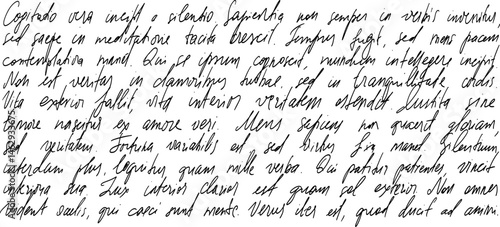 Cogitatio vera incipit a silentio. Sapientia non semper in verbis invenitur,
sed saepe in meditatione tacita crescit. Tempus fugit, sed mens pacem
contemplativa manet. Qui se ipsum cognoscit, mundum intellegere incipit.
Non est veritas in clamoribus turbae, sed in tranquillitate cordis.
Vita exterior fallit, vita interior veritatem ostendit. sine
amore nascitur ex amore veri. Mens sapiens non quaerit gloriam,
sed veritatem. Fortuna variabilis est, sed virtus manet. Silentium,
interdum plus, loquitur quam mille verba. Qui patitur patienter, vincit
sua. Lux interior clarior est quam sol exterior. Non omnes
vident oculis, qui caeci sunt mente. Verus iter est, quod ducit ad